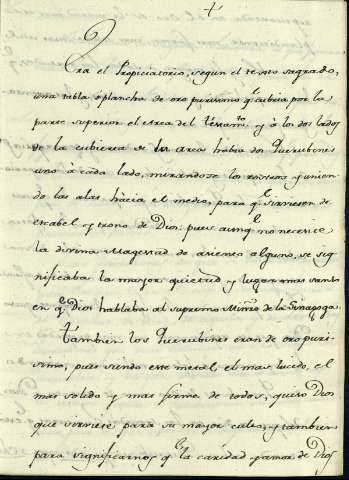 Era el Propiciatorio, segun el texto sagrado,
una tabla ò plancha de oro purissimo q.e cubria por la
parte superior el Arca del testam.to y à los dos lados
de la cubierta de la Arca habia dos Querubines
uno à cada lado, mirandose los rostros y unien
do las alas hàcia el medio, para q.e sirviesen de
escabel y trono de Dios: pues aunq.e no necesite
la divina Magestad de asiento alguno, se sig
nificaba la mayor quietud y lugar mas santo
en q.e Dios hablaba al supremo Minro de la Sinagoga.
Tambien los Querubines eran de oro puri
simo, pues siendo este metal, el mas lucido, el
mas solido y mas firme de todos, quiso Dios
que sirviese para su mayor culto, y tambien
para significarnos q.e la caridad y amor de Dios